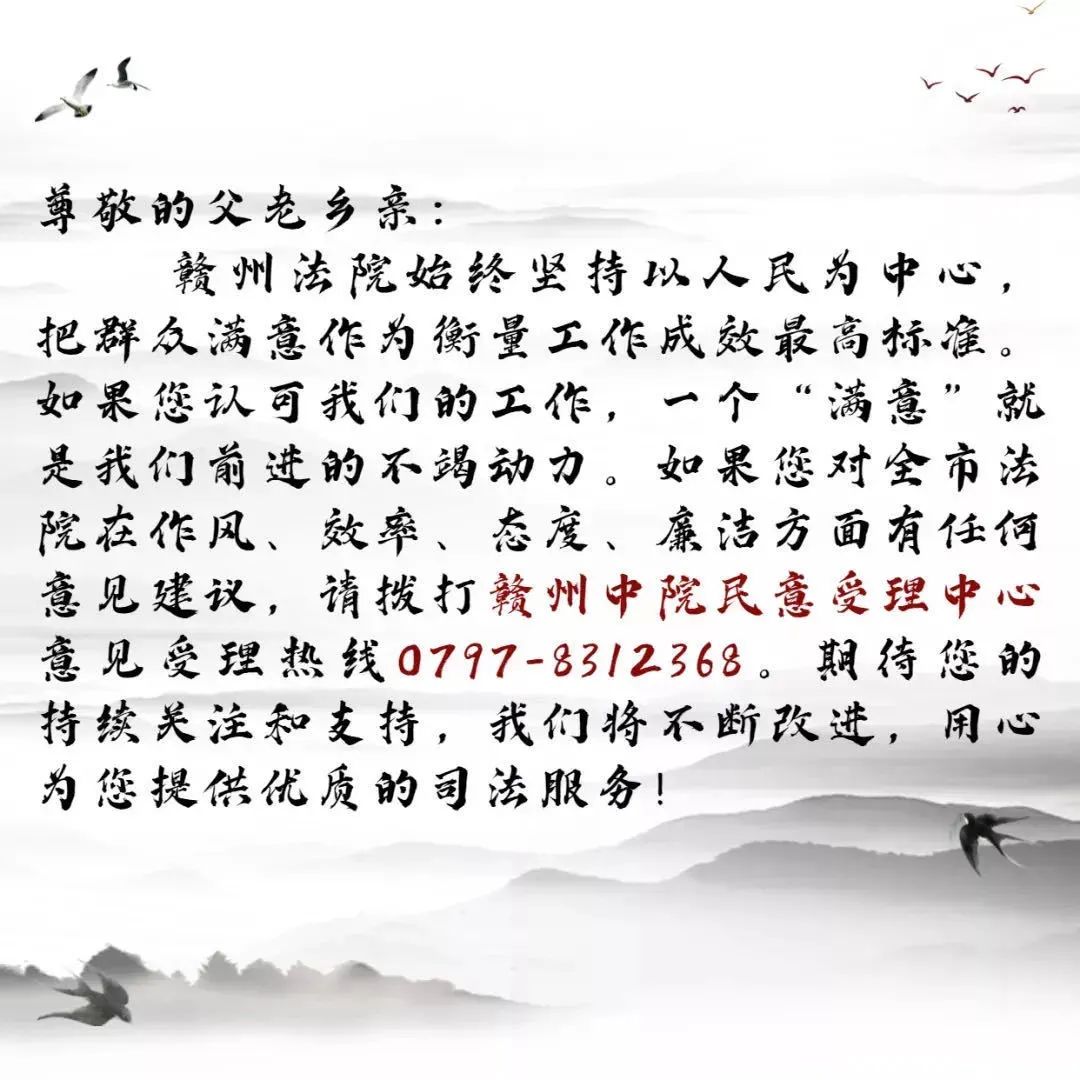 尊敬的父老乡亲：
赣州法院始终坚持以人民为中心，
把群众满意作为衡量工作成效最高标准。
如果您认可我们的工作，一个“满意”就
是我们前进的不竭动力。如果您对全市法
院在作风、效率、态度、廉洁方面有任何
意见建议，请拨打赣州中院民意受理中心
意见受理热线0797-8312368。期待您的
持续关注和支持，我们将不断改进，用心
为您提供优质的司法服务！